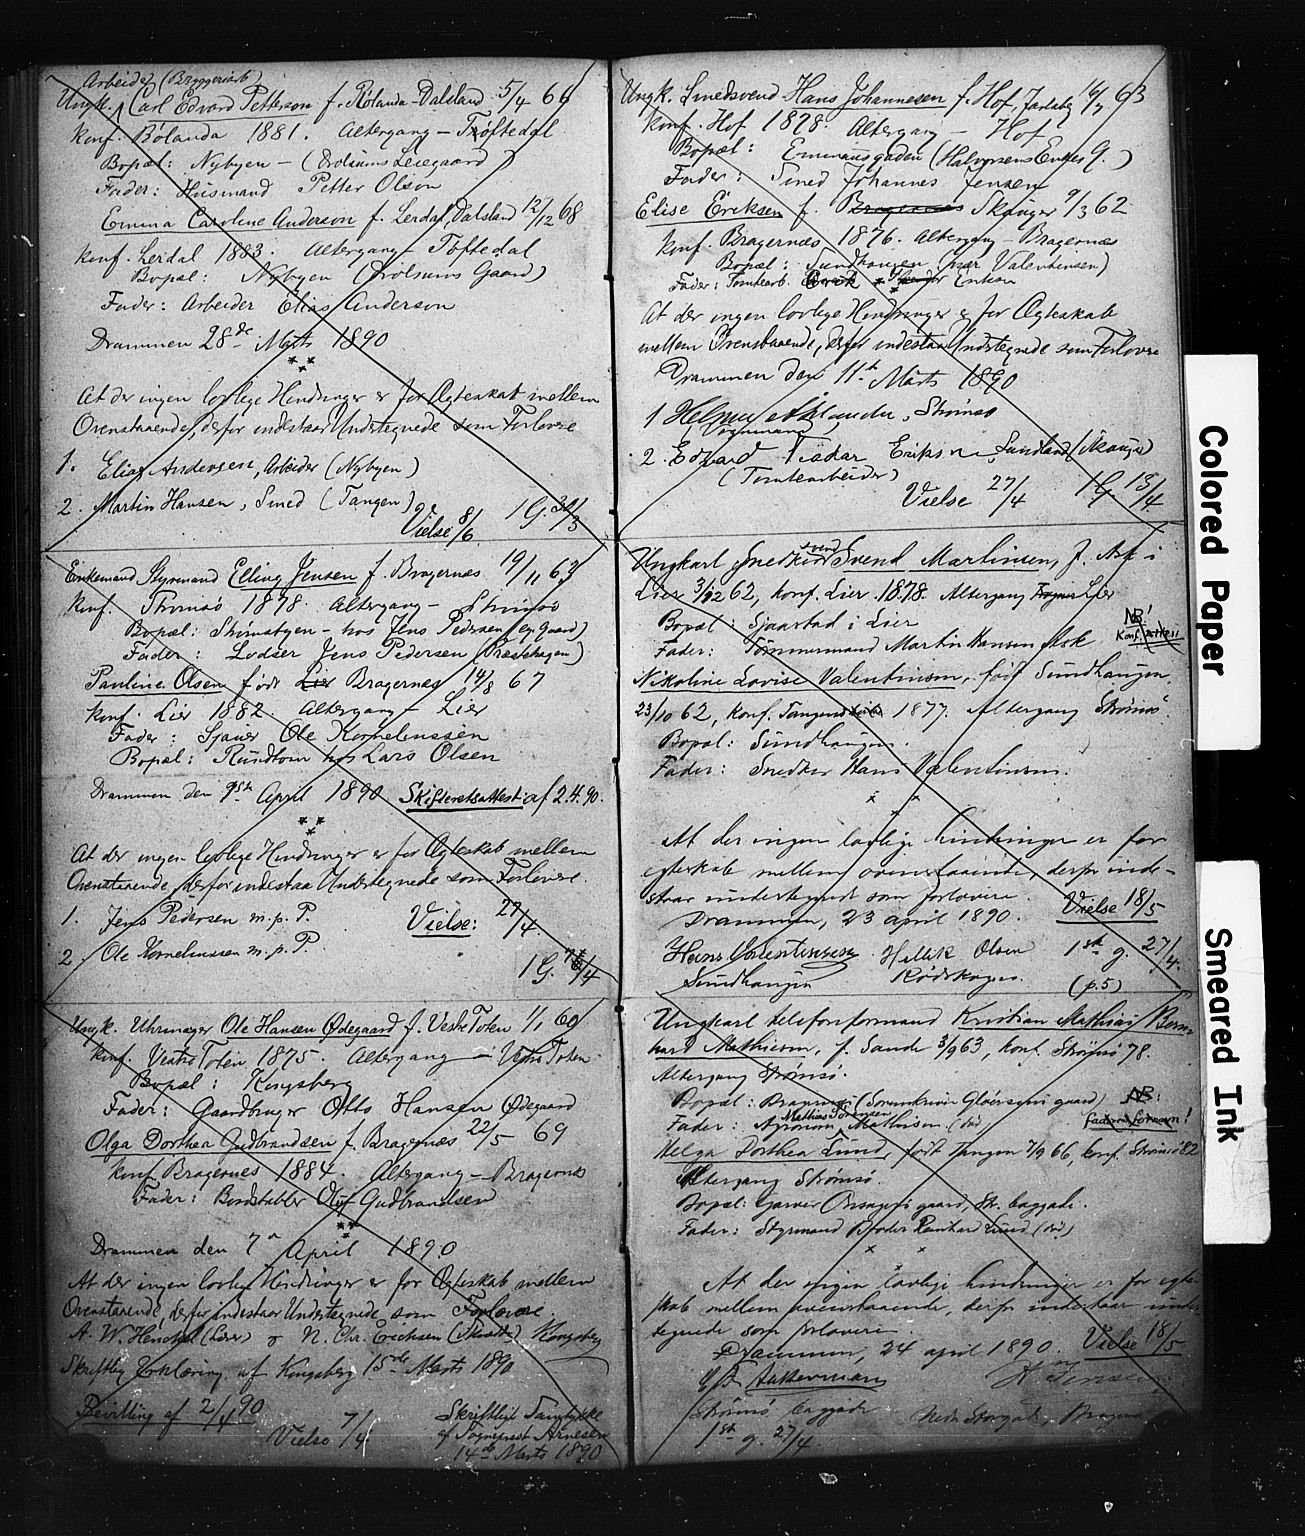 Arbeider (Bryggeriarb)
Ungk. Carl Edvard Petterson f. Rölanda-Dalsland 5/4 66
konf. Bölanda 1881. Altergang – Töftedal
Bopæl: Nybyen – (
Fader: Husmand Petter Olson
Emma Caroline Anderson f. Lerdal, Dalsland 12/12 68
konf. Lerdal 1883. Altergang – Töftedal
Bopæl: Nybyen ( Gaard)
Fader: Arbeider Elias Anderson
Drammen 28de Marts 1890
At der ingen lovlige Hindringer er for Ægteskab mellem
Ovenstaaende, derfor indestaar Undertegnede som Forlovere
1. Elias Andersen, Arbeider (Nybyen)
2. Martin Hansen, Smed (Tangen)
Vielse 8/6 1 G. 30/3
Enkemand Styrmand Elling Jensen f. Bragernes 19/11 63
konf. Strømsø 1878. Altergang – Strømsø
Bopæl: Strømsbyen – hos Jens Pedersen (eg. Gaard)
Fader: Lodser Jens Pedersen (Præstehagen)
Pauline Olsen født Lier Bragernes 14/8 67
konf. Lier 1882. Altergang – Lier
Fader: Sjauer Ole Kornelinssen
Bopæl: Rundtom hos Lars Olsen
Drammen den 9de April 1890 Skifteretsattest af 2.4.90.
At der ingen lovlige Hindringer er for Ægteskab mellem
Ovenstaaende, derfor indestaa Undertegnede som Forlovere.
1. Jens Pedersen m.p.P. Vielse: 27/4
2. Ole Kornelinssen m.p.P.
1 G. /4
Ungk. Uhrmager Ole Hansen Ødegaard f. Vestre Toten 1/1 60
konf. Vestre Toten 1875. Altergang – Vestre Toten
Bopæl: Kongsberg
Fader: Gaardbruger Otto Hansen Ødegaard
Olga Dorthea Gudbrandsen f. Bragernes 22/5 69
konf. Bragernes 1884. Altergang – Bragernes
Fader: Bundtabler Oluf Gudbrandsen
Drammen den 7de April 1890
At der ingen lovlige Hindringer er for Ægteskab mellem
Ovenstaaende, derfor indestaar Undertegnede som Forlovere.
A. W. Henckel (Lærer) & N. Chr. Erichsen Kongsberg
Skriftlig Erklæring af Kongsberg 15de Marts 1890
Bevilling af 2/4 90
Vielse 7/4
Skriftligt Samtykke
af Sognepræst Arnesen
14de Marts 1890
Ungk. Smedsvend Hans Johannesen f. Hof, Jarlsberg 16/7 63
konf. Hof 1878. Altergang – Hof
Bopæl: Emmausgaden (Halvorsens Enkes G.)
Fader: Smed Johannes Jensen
Elise Eriksen f. Bragernæs Skouger 9/3 62
konf. Bragernæs 1876. Altergang – Bragernæs
Bopæl: Sundhaugen (nær Valentinsen)
Fader: Tomtearb. Eriksen
At der ingen lovlige Hindringer er for Ægteskab
mellem Ovenstaaende, derfor indestaar Undertegnede som Forlovere
Drammen den 11te Marts 1890
1 Helmer Strømsø
Vognmand
2. Edvard Teodor Eriksen, Sundland (Skouger)
(Tomtearbeider)
Vielse 27/4 1 G. 13/4
Ungkarl Snedkersvend Svend Martinsen, f. Ask i
Lier 3/12 62, konf. Lier 1878. Altergang Lier
Bopæl: Sjaastad i Lier
NB!
Konf. attest
Fader: Tømmermand Martin Hansen Ask
Nikoline Lovise Valentinsen, født Sundhaugen,
23/10 62, konf. Tangen 1877. Altergang Strømsø.
Bopæl: Sundhaugen.
Fader: Snedker Hans Valentinsen.
At der ingen lovlige hindringer er for
egteskab mellem ovenstaaende, derfor inde-
staar undertegnede som forlovere.
Vielse 18/5
Drammen, 23 april 1890.
Hans Valentinsen Hellik Olsen 1ste g. 27/4.
Sundhaugen Rødskogen. (p.5)
Ungkarl telefonformand Kristian Mathias Bern-
hard Mathiesen, f. Sande 3/9 63, konf. Strømsø 78.
Altergang Strømsø.
Bopæl: Bragernes ( gaard) NB:
Mathias Sørensen
Fader: Agronom Mathisen (død) faderens fornavn!
Helga Dorthea Lund, født Tangen 7/9 66, konf. Strømsø 82
Altergang Strømsø.
Bopæl: Garver gaard, Str. baggade.
Fader: Styrmand Peder Reinhar Lund (død)
At der ingen lovlige hindringer er for egte-
skab mellem ovenstaaende, derfor indestaar under-
tegnede som forlovere.
Drammen, 24 april 1890. Vielse 18/5
Ankerman H Jensen
Strømsø baggade Nedre Storgade, Bragernes
1ste g. 27/4.
Colored Paper
Smeared Ink